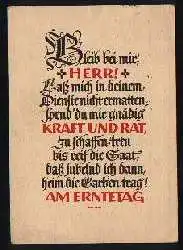 Bleib bei mir
HERR!
Laß mich in deinem
Dienste nicht ermatten,
spend' du mir gnädig
KRAFT UND RAT,
zu schaffen treu
bis reif die Saat,
daß jubelnd ich dann
heim die Garben trag!
AM ERNTETAG